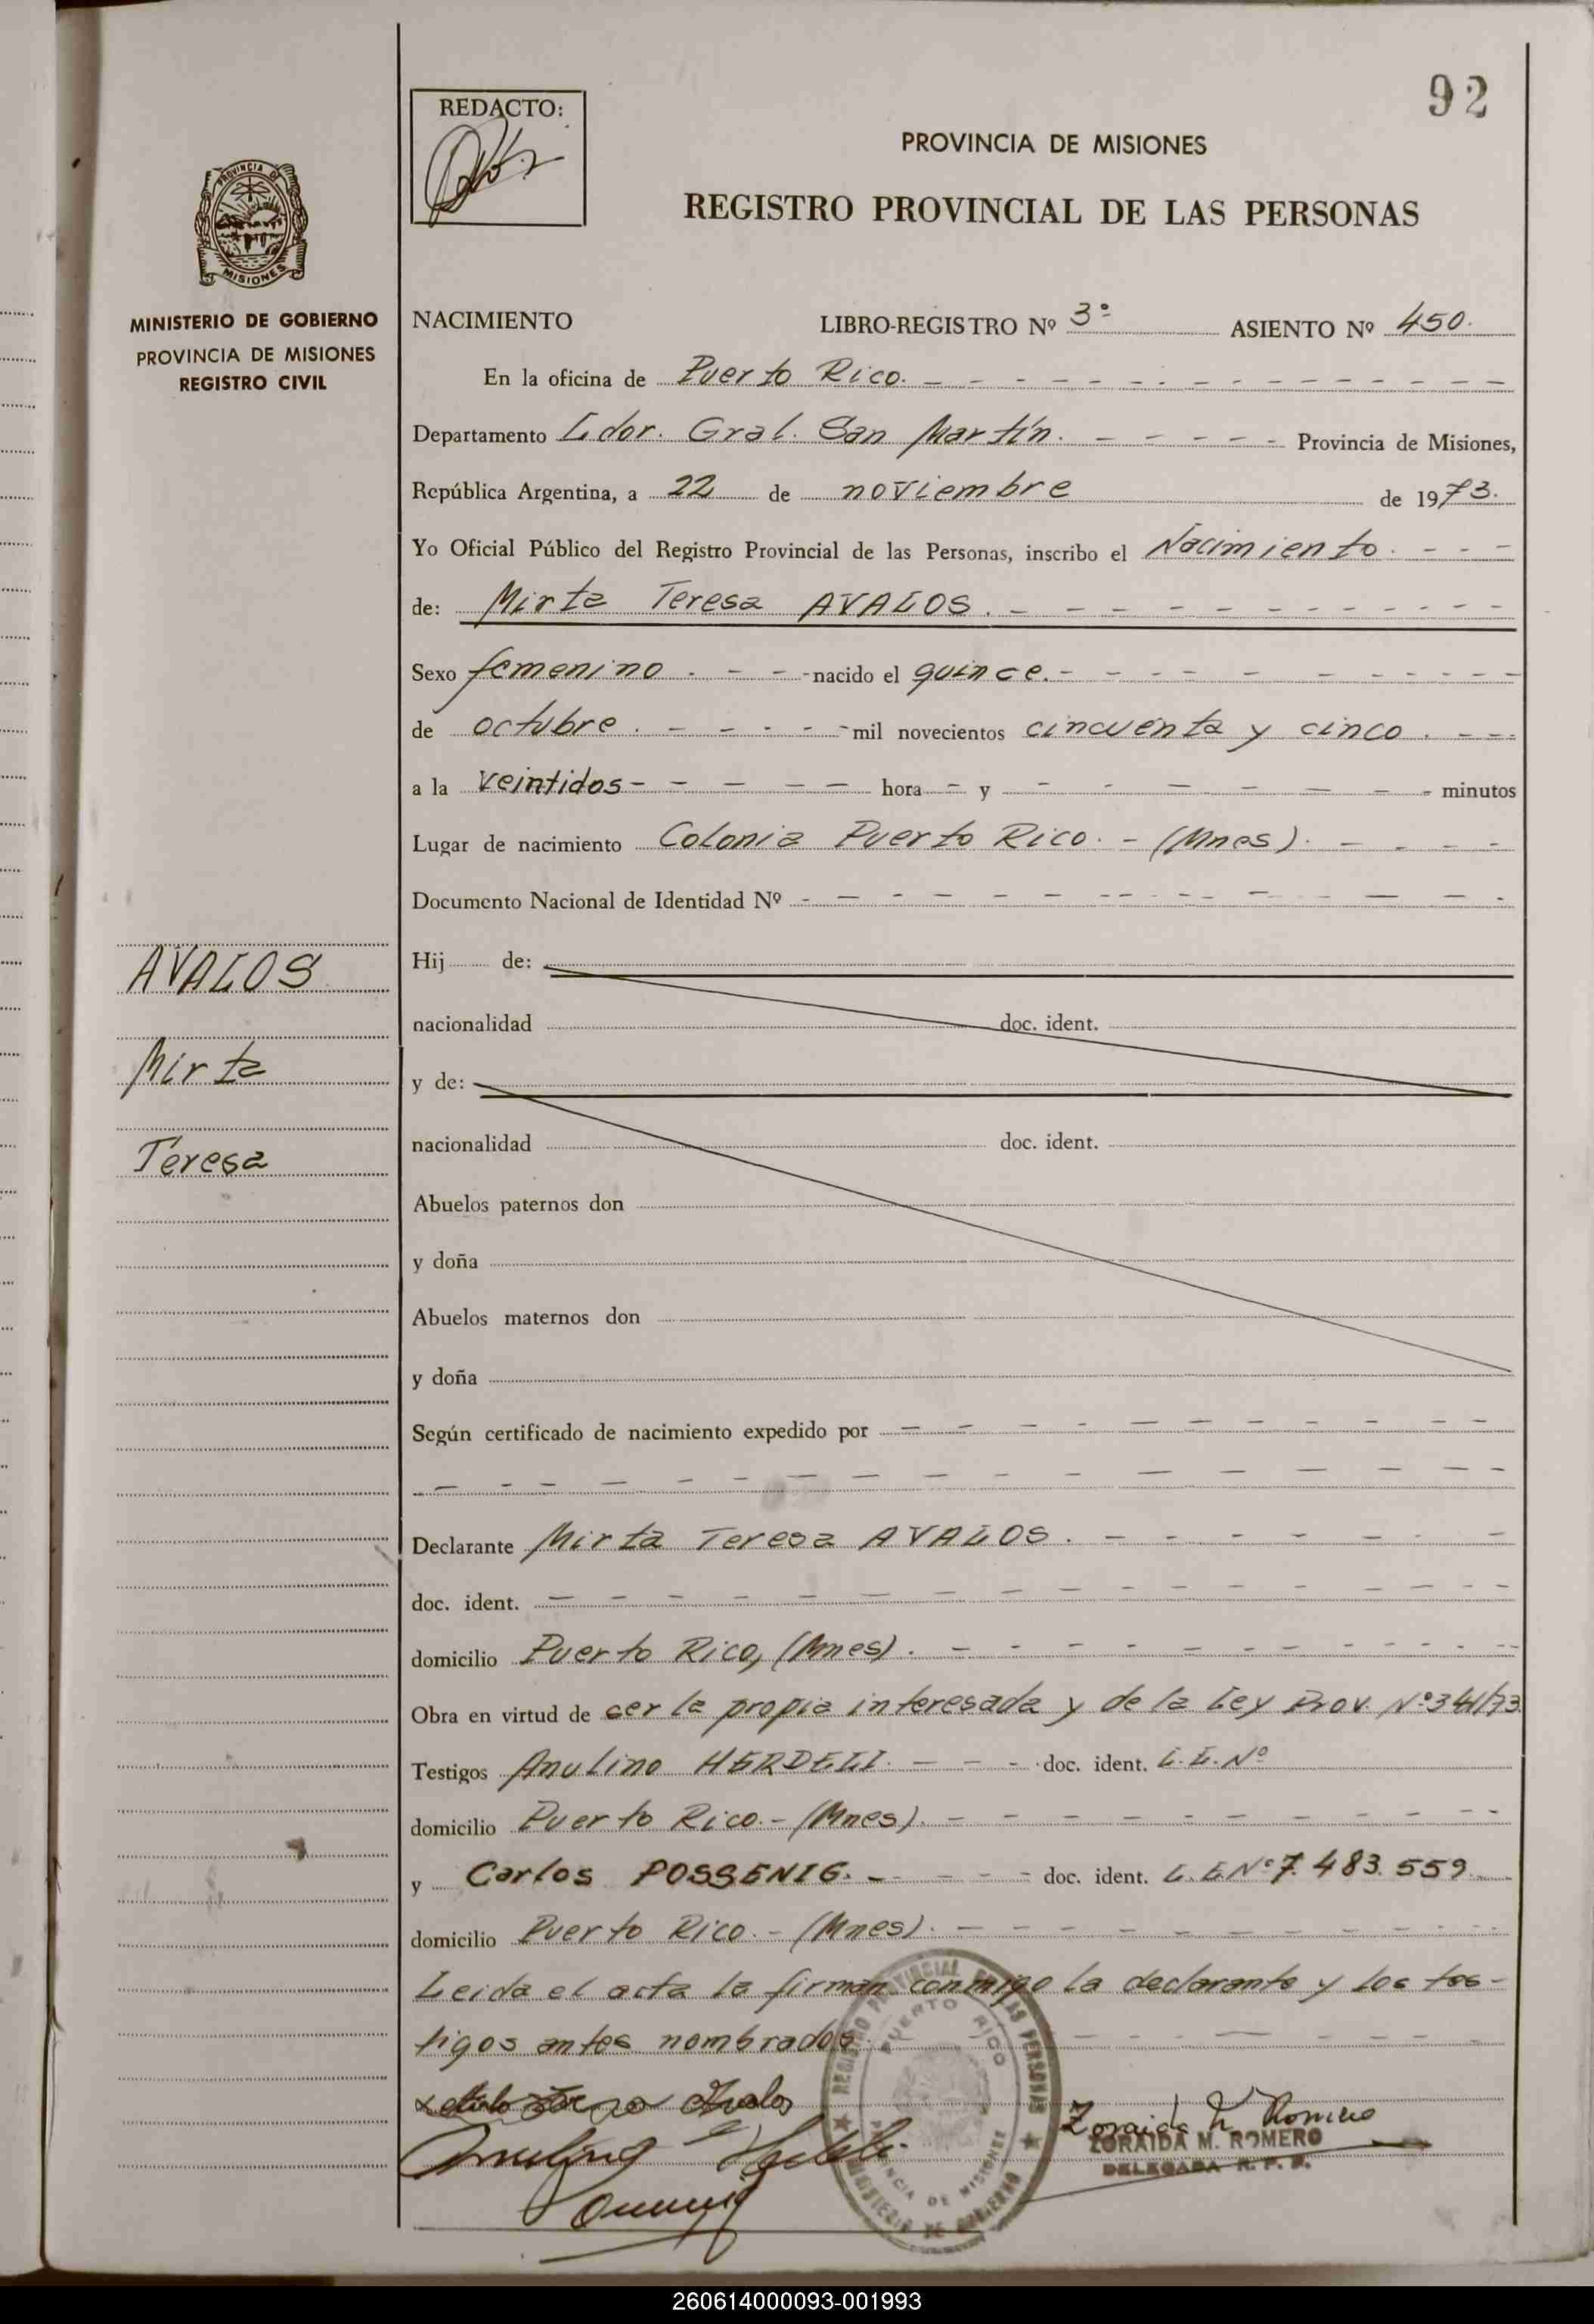 92
REDACTO:
PROVINCIA DE MISIONES
REGISTRO PROVINCIAL DE LAS PERSONAS
PROVINCIA DE
MISIONES
MINISTERIO DE GOBIERNO
PROVINCIA DE MISIONES
REGISTRO CIVIL
NACIMIENTO LIBRO-REGISTRO Nº 3º ASIENTO Nº 450.
En la oficina de Puerto Rico.
Departamento Ldor. Gral. San Martín. Provincia de Misiones,
República Argentina, a 22 de noviembre de 1973.
Yo Oficial Público del Registro Provincial de las Personas, inscribo el Nacimiento.
de: Mirta Teresa AVALOS.
Sexo femenino. nacido el quince.
de octubre. mil novecientos cincuenta y cinco.
a la veintidos hora y minutos
Lugar de nacimiento Colonia Puerto Rico. - (Mnes).
Documento Nacional de Identidad Nº
AVALOS
Mirta
Teresa
Hij de:
nacionalidad doc. ident.
y de:
nacionalidad doc. ident.
Abuelos paternos don
y doña
Abuelos maternos don
y doña
Según certificado de nacimiento expedido por
Declarante Mirta Teresa AVALOS.
doc. ident.
domicilio Puerto Rico, (Mnes).
Obra en virtud de ser la propia interesada y de la Ley Prov. Nº 341/73
Testigos Anulino HERDELI. doc. ident. L.E. Nº
domicilio Puerto Rico. - (Mnes).
y Carlos POSSENIG. doc. ident. L.E Nº 7.483.559
domicilio Puerto Rico. - (Mnes).
Leida el acta la firman conmigo la declarante y los tes-
tigos antes nombrados.
REGISTRO PROVINCIAL DE LAS PERSONAS
PUERTO RICO
PROVINCIA DE MISIONES
MINISTERIO DE GOBIERNO
Avalos
Zoraida M. Romero
ZORAIDA M. ROMERO
DELEGADA R. P. P.
260614000093-001993